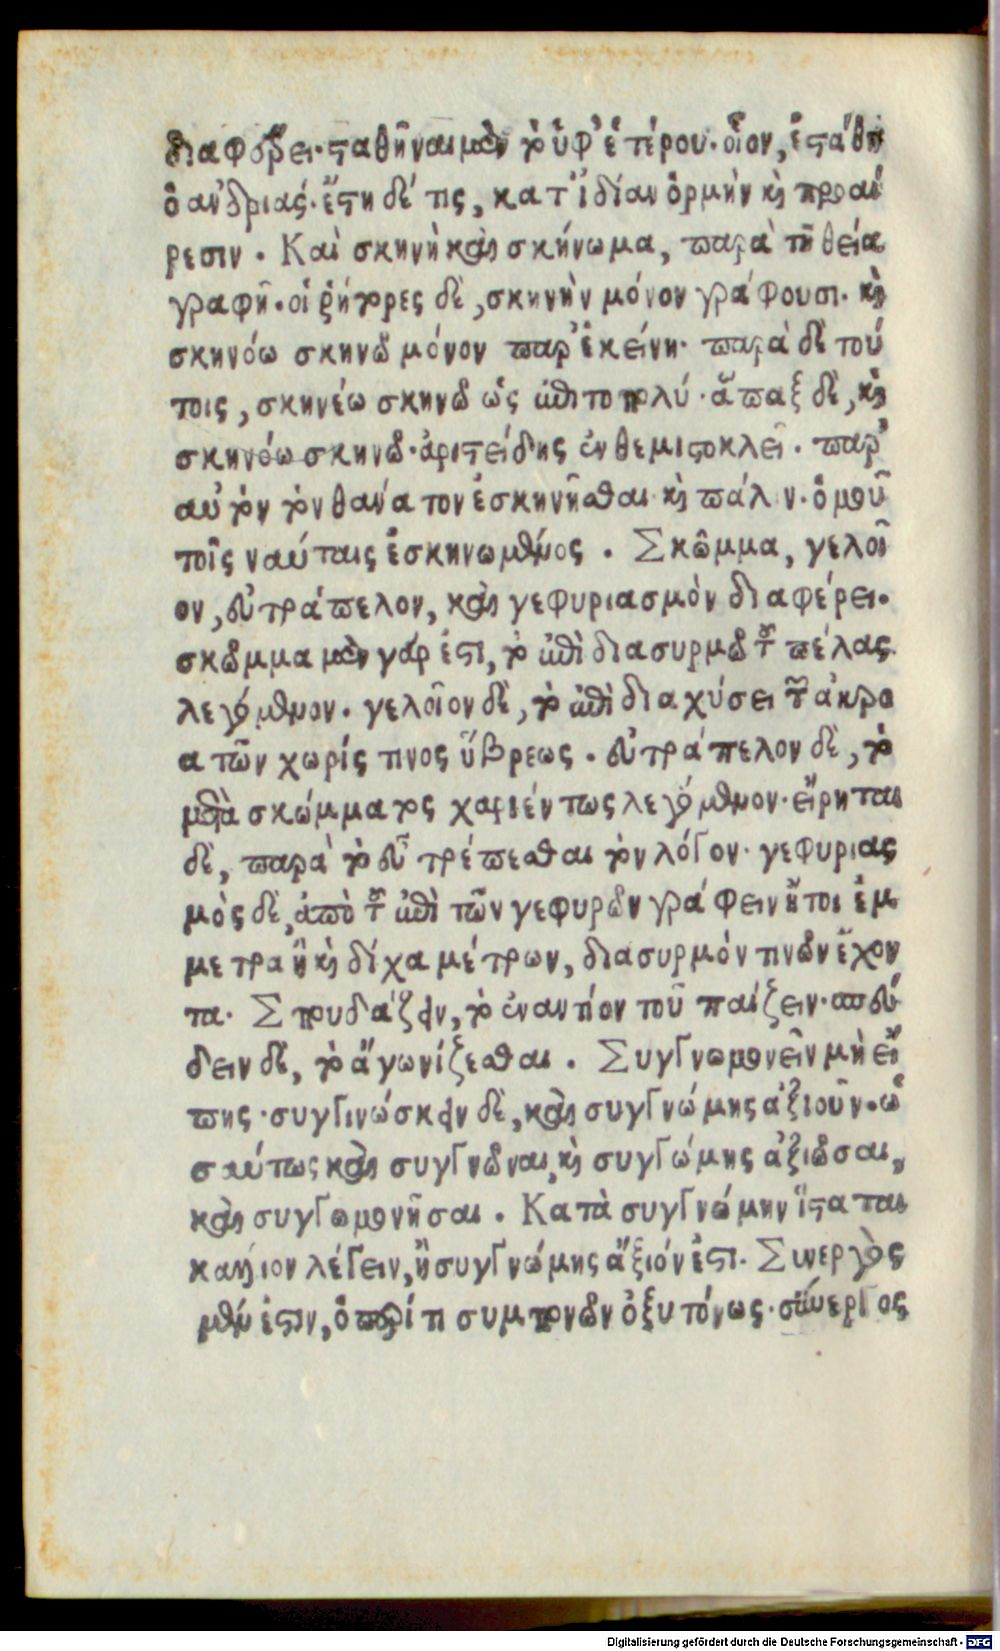 διαφέρει· σταθῆναι μὲν τὸ ὑφ' ἑτέρου· οἷον, ἐστάθη
ὁ ἀνδριάς· ἔστη δέ τις, κατ' ἰδίαν ὁρμὴν καὶ προαί
ρεσιν . Καὶ σκηνὴ καὶ σκήνωμα, παρὰ τῇ θείᾳ
γραφῇ· οἱ ῥήτορες δὲ, σκηνὴν μόνον γράφουσι· καὶ
σκηνόω σκηνῶ μόνον παρ' ἐκείνῃ· παρὰ δὲ τού
τοις, σκηνέω σκηνῶ ὡς ἐπὶ τοπολύ· ἅπαξ δὲ, καὶ
σκηνόω σκηνῶ· ἀριστείδης ἐν θεμιστοκλεῖ . παρ'
αὐτὸν τὸν θάνατον ἐσκηνῆσθαι καὶ πάλιν· ὁμοῦ
τοῖς ναύταις ἐσκηνωμένος . Σκῶμμα, γελοῖ
ον, εὐτράπελον, καὶ γεφυριασμὸν διαφέρει·
σκῶμμα μὲν γάρ ἐστι, τὸ ἐπὶ διασυρμῷ τοῦ πέλας
λεγόμενον· γελοῖον δὲ, τὸ ἐπὶ διαχύσει τῶν ἀκρο
ατῶν χωρίς τινος ὕβρεως . εὐτράπελον δὲ, τὸ
μετὰ σκώμματος χαριέντως λεγόμενον· εἴρηται
δὲ, παρὰ τὸ εὖ τρέπεσθαι τὸν λόγον· γεφυριας
μὸς δὲ, ἀπὸ τοῦ ἐπὶ τῶν γεφυρῶν γράφειν ἤτοι ἔμ
μετρα ἢ καὶ δίχα μέτρων, διασυρμόν τινῶν ἔχον
τα· Σπουδάζειν, τὸ ἐναντίον τοῦ παίζειν· σπεύ
δειν δὲ, τὸ ἀγωνίζεσθαι . Συγγνωμονεῖν μὴ εἴ
πῃς · συγγινώσκειν δὲ, καὶ συγγνώμης ἀξιοῦν· ὡ
σαύτως καὶ συγγνῶναι, καὶ συγγώμης ἀξιῶσαι,
καὶ συγγωμονῆσαι . Κατὰ συγγνώμην ἵσταται
κάλλιον λέγειν, ἢ συγγνώμης ἄξιόν ἐστι· Συνεργὸς
μέν ἐστιν, ὁ περί τι συμπονῶν ὀξυτόνως· σύνεργος
Digitalisierung gefördert durch die Deutsche Forschungsgemeinschaft - DFG